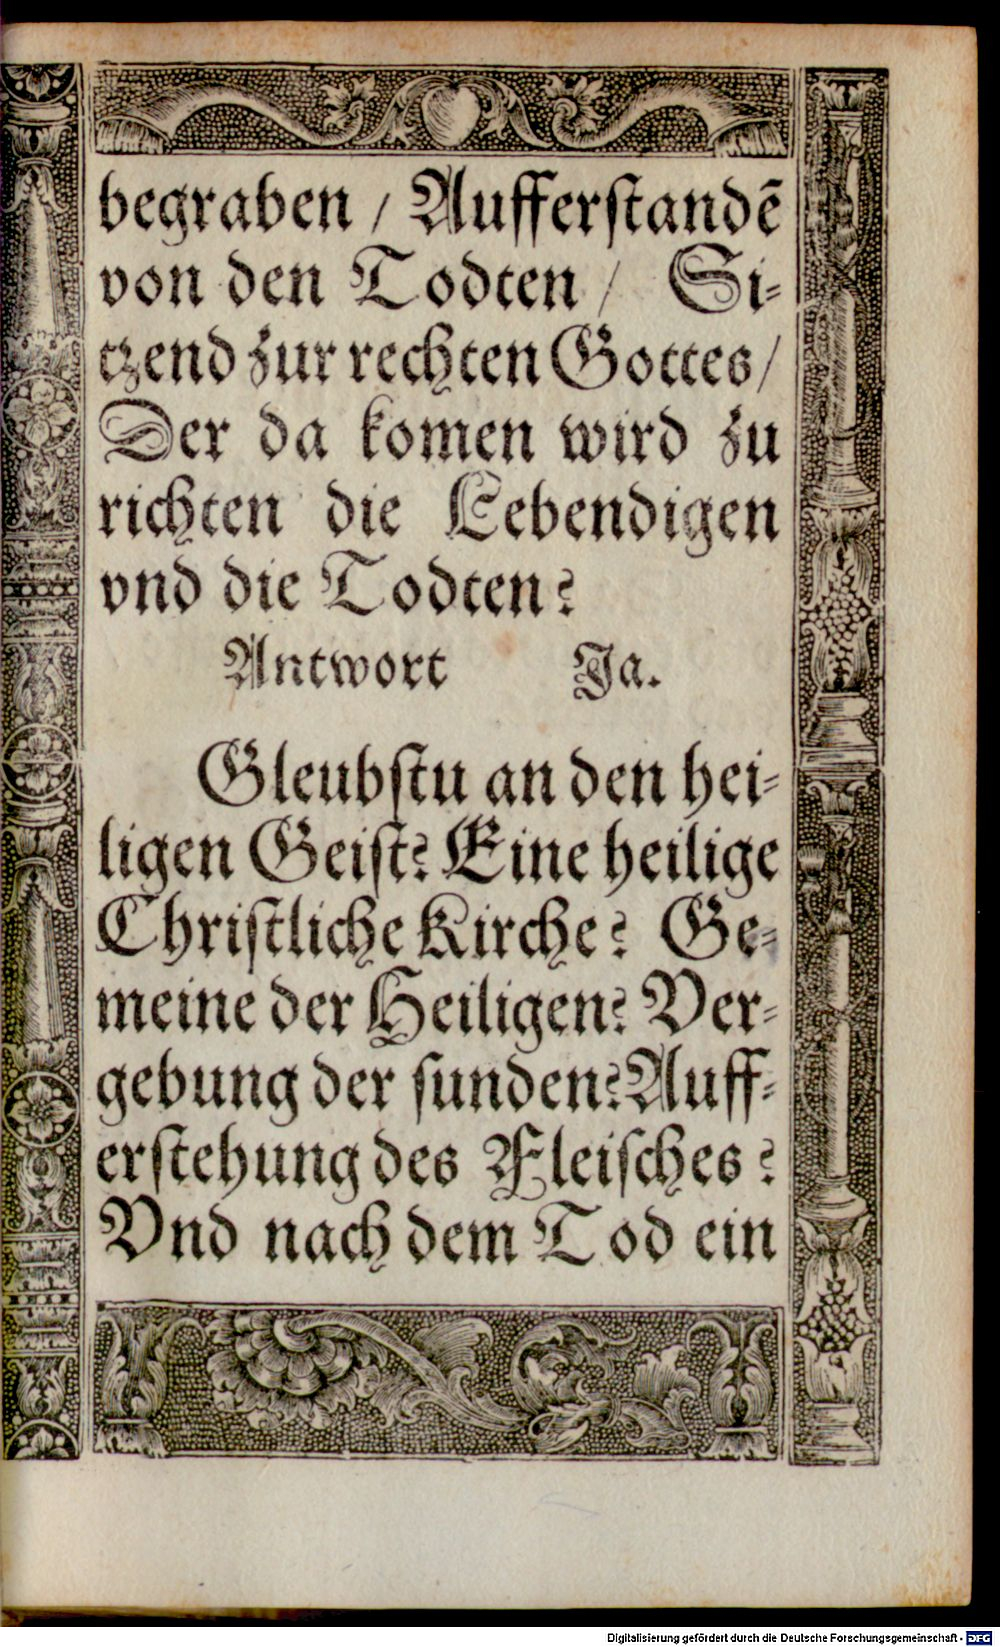 begraben / Aufferſtandẽ
von den Todten / Si-
tzend zur rechten Gottes/
Der da komen wird zu
richten die Lebendigen
vnd die Todten?
Antwort Ja.
Gleubſtu an den hei-
ligen Geiſt? Eine heilige
Chriſtliche Kirche? Ge-
meine der Heiligen? Ver-
gebung der ſunden? Auff-
erſtehung des Fleiſches?
Vnd nach dem Tod ein
Digitalisierung gefördert durch die Deutsche Forschungsgemeinschaft - DFG